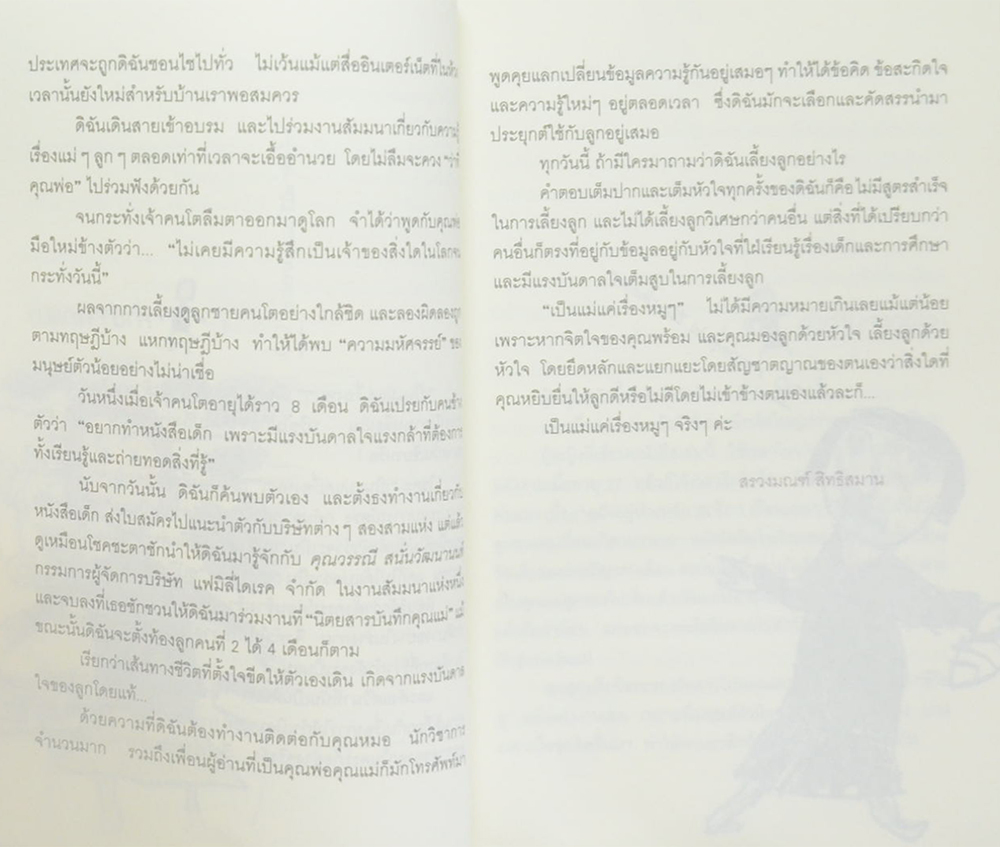 ประเทศจะถูกดิฉันซอนไซไปทั่ว ไม่เว้นแม้แต่สื่ออินเตอร์เน็ตที่ใน
เวลานั้นยังใหม่สำหรับบ้านเราพอสมควร
ดิฉันเดินสายเข้าอบรม และไปร่วมงานสัมมนาเกี่ยวกับ
เรื่องแม่ ๆ ลูก ๆ ตลอดเท่าที่เวลาจะเอื้ออำนวย โดยไม่ลืมจะควง
คุณพ่อ” ไปร่วมฟังด้วยกัน
จนกระทั่งเจ้าคนโตลืมตาออกมาดูโลก จำได้ว่าพูดกับ
มือใหม่ข้างตัวว่า... “ไม่เคยมีความรู้สึกเป็นเจ้าของสิ่งใดในโลก
กระทั่งวันนี้”
ผลจากการเลี้ยงดูลูกชายคนโตอย่างใกล้ชิด และลองผิดลอง
ตามทฤษฎีบ้าง แหกทฤษฎีบ้าง ทำให้ได้พบ “ความมหัศจรรย์”
มนุษย์ตัวน้อยอย่างไม่น่าเชื่อ
วันหนึ่งเมื่อเจ้าคนโตอายุได้ราว 8 เดือน ดิฉันเปรยกับคน
ตัวว่า “อยากทำหนังสือเด็ก เพราะมีแรงบันดาลใจแรงกล้าที่ต้องการ
ทั้งเรียนรู้และถ่ายทอดสิ่งที่รู้”
นับจากวันนั้น ดิฉันก็ค้นพบตัวเอง และตั้งธงทำงานเกี่ยวกับ
หนังสือเด็ก ส่งใบสมัครไปแนะนำตัวกับบริษัทต่าง ๆ สองสามแห่ง แต่แล้ว
ดูเหมือนโชคชะตาชักนำให้ดิฉันมารู้จักกับ คุณวรรณี
กรรมการผู้จัดการบริษัท แฟมิลี่ไดเรค จำกัด ในงานสัมมนาแห่งหนึ่ง
และจบลงที่เธอชักชวนให้ดิฉันมาร่วมงานที่ “นิตยสารบันทึกคุณแม่”
ขณะนั้นดิฉันจะตั้งท้องลูกคนที่ 2 ได้ 4 เดือนก็ตาม
เรียกว่าเส้นทางชีวิตที่ตั้งใจขีดให้ตัวเองเดิน เกิดจากแรงบันดาล
ใจของลูกโดยแท้...
ด้วยความที่ดิฉันต้องทำงานติดต่อกับคุณหมอ นักวิชาการ
จำนวนมาก รวมถึงเพื่อนผู้อ่านที่เป็นคุณพ่อคุณแม่ก็มักโทรศัพท์มา
พูดคุยแลกเปลี่ยนข้อมูลความรู้กันอยู่เสมอๆ ทำให้ได้ข้อคิด ข้อสะกิดใจ
และความรู้ใหม่ๆ อยู่ตลอดเวลา ซึ่งดิฉันมักจะเลือกและคัดสรรนำมา
ประยุกต์ใช้กับลูกอยู่เสมอ
ทุกวันนี้ ถ้ามีใครมาถามว่าดิฉันเลี้ยงลูกอย่างไร
คำตอบเต็มปากและเต็มหัวใจทุกครั้งของดิฉันก็คือไม่มีสูตรสำเร็จ
ในการเลี้ยงลูก และไม่ได้เลี้ยงลูกวิเศษกว่าคนอื่น แต่สิ่งที่ได้เปรียบกว่า
คนอื่นก็ตรงที่อยู่กับข้อมูลอยู่กับหัวใจที่ใฝ่เรียนรู้เรื่องเด็กและการศึกษา
และมีแรงบันดาลใจเต็มสูบในการเลี้ยงลูก
“เป็นแม่แค่เรื่องหมูๆ” ไม่ได้มีความหมายเกินเลยแม้แต่น้อย
เพราะหากจิตใจของคุณพร้อม และคุณมองลูกด้วยหัวใจ เลี้ยงลูกด้วย
หัวใจ โดยยึดหลักและแยกแยะโดยสัญชาตญาณของตนเองว่าสิ่งใดที่
คุณหยิบยื่นให้ลูกดีหรือไม่ดีโดยไม่เข้าข้างตนเองแล้วละก็...
เป็นแม่แค่เรื่องหมูๆ จริงๆ ค่ะ
สรวงมณฑ์ สิทธิสมาน